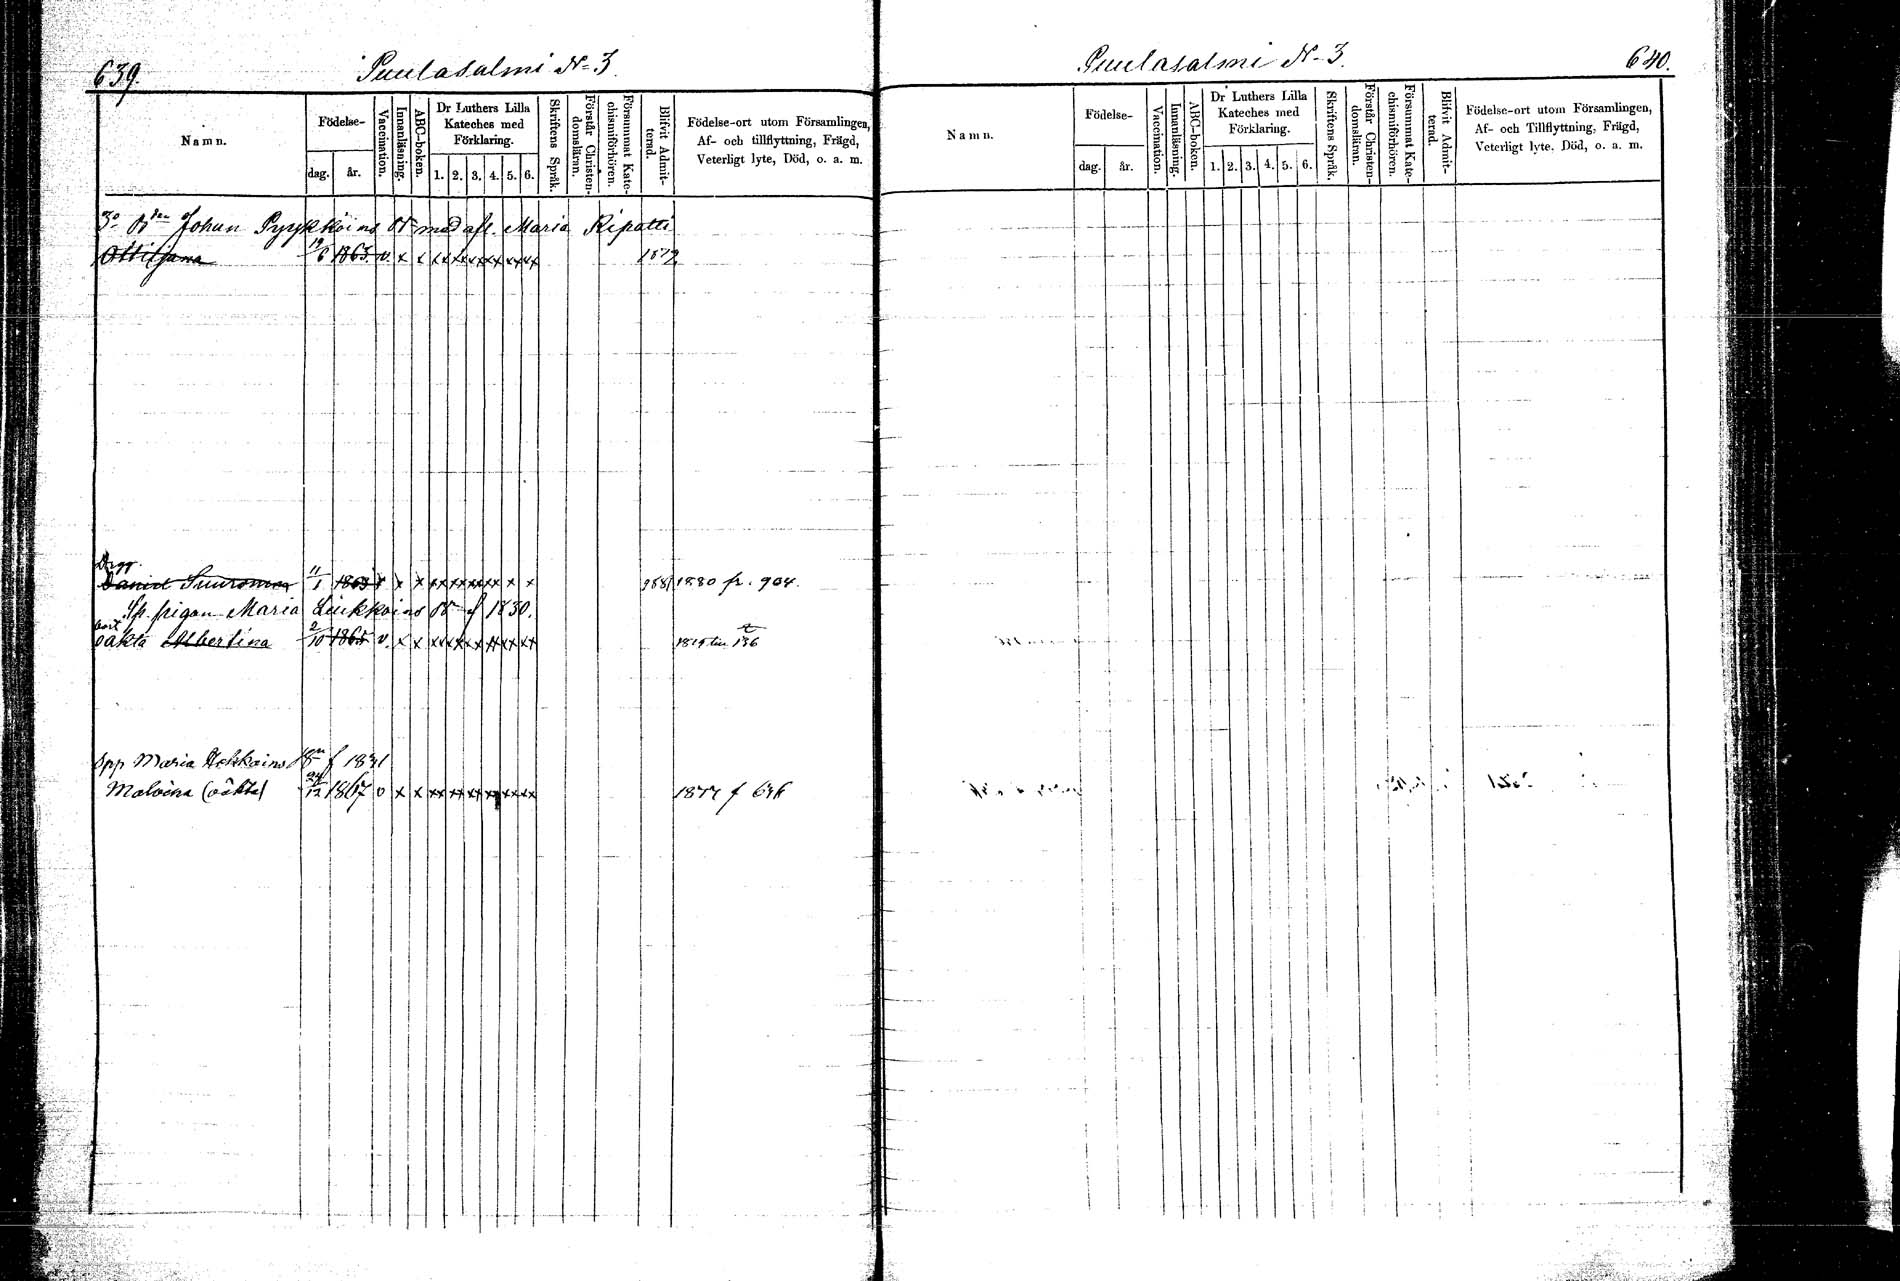 639.
Puulasalmi N 3.
Namn.
Födelse-
dag.
år.
Vaccination.
Innanläsning.
ABC-boken.
Dr Luthers Lilla
Kateches med
Förklaring.
1. 2. 3. 4. 5. 6.
Skriftens Språk.
Förstår Christen-
domsläran.
Försummat Kate-
chismiförhören.
Blifvit Admit-
terad.
Födelse-ort utom Församlingen,
Af- och tillflyttning, Frägd,
Veterligt lyte, Död, o. a. m.
3o Bden Johan Pyykköins med afl. Maria Ripatti
Ottiljana 19/6 1863. v. x x xx xx xx xx xx xx 1879
Drgg.
Daniel Suuromaa 11/1 1863 v x x xx xx xx xx x x 1881 1880 fr. 904.
Sp. pigan Maria Liukkoins f 1830.
oäkta Albertina 2/10 1865 v. x x xx xx xx xx xx xx 136
Spp Maria f 1831
Malvina (oäkta) 24/12 1867 v x x xx xx xx xx xx xx 1877 f 646
Puulasalmi N 3.
640.
Namn.
Födelse-
dag.
år.
Vaccination.
Innanläsning.
ABC-boken.
Dr Luthers Lilla
Kateches med
Förklaring.
1. 2. 3. 4. 5. 6.
Skriftens Språk.
Förstår Christen-
domsläran.
Försummat Kate-
chismiförhören.
Blifvit Admit-
terad.
Födelse-ort utom Församlingen,
Af- och Tillflyttning, Frägd,
Veterligt lyte. Död, o. a. m.